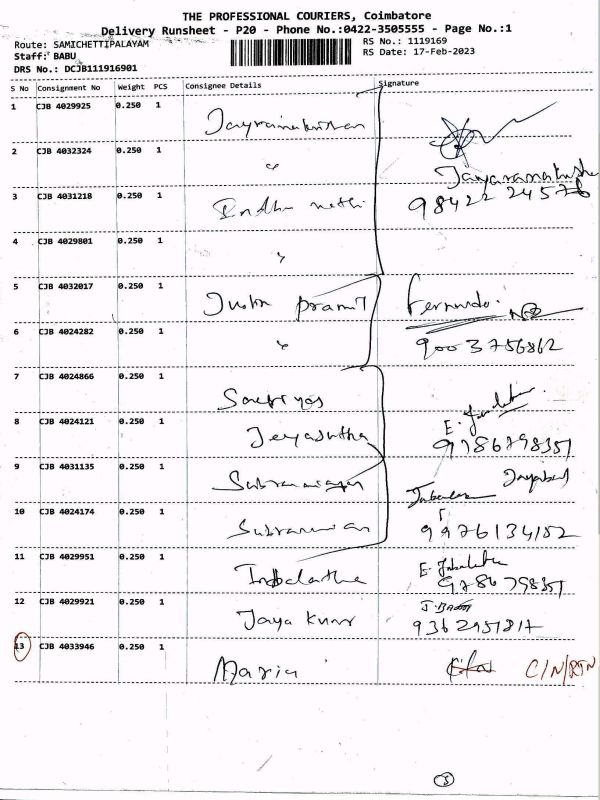 THE PROFESSIONAL COURIERS, Coimbatore
Delivery Runsheet - P20 - Phone No.:0422-3505555 - Page No.:1
Route: SAMICHETTIPALAYAM
RS No.: 1119169
Staff: BABU
RS Date: 17-Feb-2023
DRS No.: DCJB111916901
S No Consignment No Weight PCS Consignee Details Signature
1 CJB 4029925 0.250 1 Jayramakrishnan
2 CJB 4032324 0.250 1 "
3 CJB 4031218 0.250 1 Indhu mathi 98422 24576
4 CJB 4029801 0.250 1 "
5 CJB 4032017 0.250 1 Justin Pramil Fernando.
6 CJB 4024282 0.250 1 " 9003756862
7 CJB 4024866 0.250 1
8 CJB 4024121 0.250 1 Jeyasutha E. 9786798351
9 CJB 4031135 0.250 1
10 CJB 4024174 0.250 1 9976134152
11 CJB 4029951 0.250 1 E. 9786798351
12 CJB 4029921 0.250 1 Jaya Kumar
13 CJB 4033946 0.250 1 Maria C/N/RTN